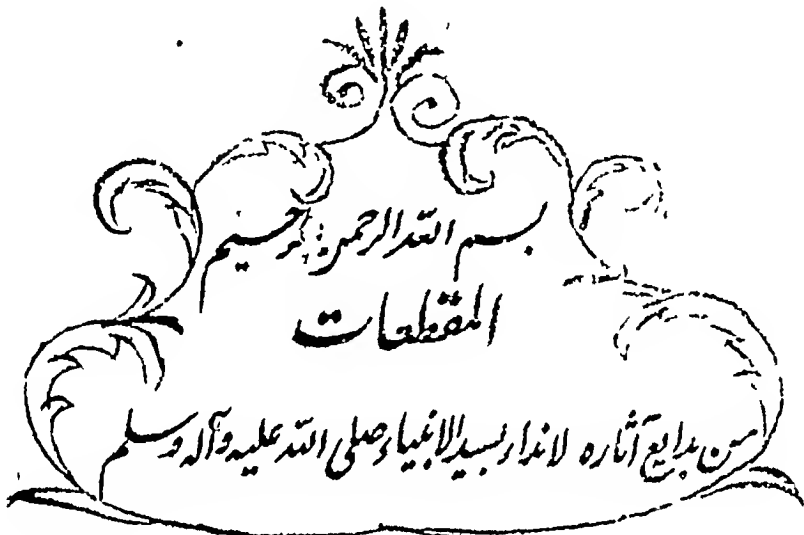 بسم الله الرحمن الرحيم
المقطعات
من بدایع آثاره لانذار بسید الانبیاء صلی الله علیه وآله وسلم